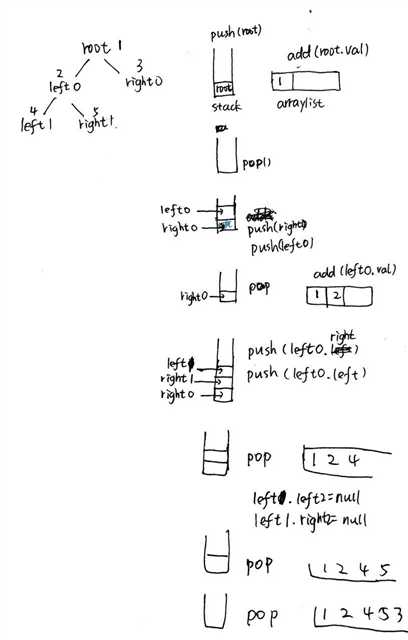 root 1
2
left0
3
right0
4
left1
5
right1
push(root)
root
stack
add(root.val)
1
arraylist
pop()
left0
right0
push(right0)
push(left0)
right0
pop
add(left0.val)
1 2
left1
right1
right0
push(left0.right)
push(left0.left)
pop
1 2 4
left1.left2=null
left1.right2=null
pop
1 2 4 5
pop
1 2 4 5 3